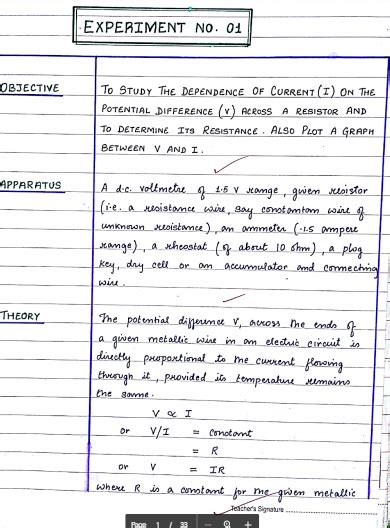 EXPERIMENT NO. 01
OBJECTIVE
TO STUDY THE DEPENDENCE OF CURRENT (I) ON THE
POTENTIAL DIFFERENCE (V) ACROSS A RESISTOR AND
TO DETERMINE ITS RESISTANCE. ALSO PLOT A GRAPH
BETWEEN V AND I.
APPARATUS
A d.c. voltmetre of 1.5 V range, given resistor
(i.e. a resistance wire, say constantam wire of
unknown resistance), an ammeter (1.5 ampere
range), a rheostat (of about 10 ohm), a plug
key, dry cell or an accumulator and connecting
wire.
THEORY
The potential difference V, across the ends of
a given metallic wire in an electric circuit is
directly proportional to the current flowing
through it, provided its temperature remains
the same.
V ∝ I
or V/I = constant
= R
or V = IR
where R is a constant for the given metallic
Teacher's Signature
Page 1 / 33